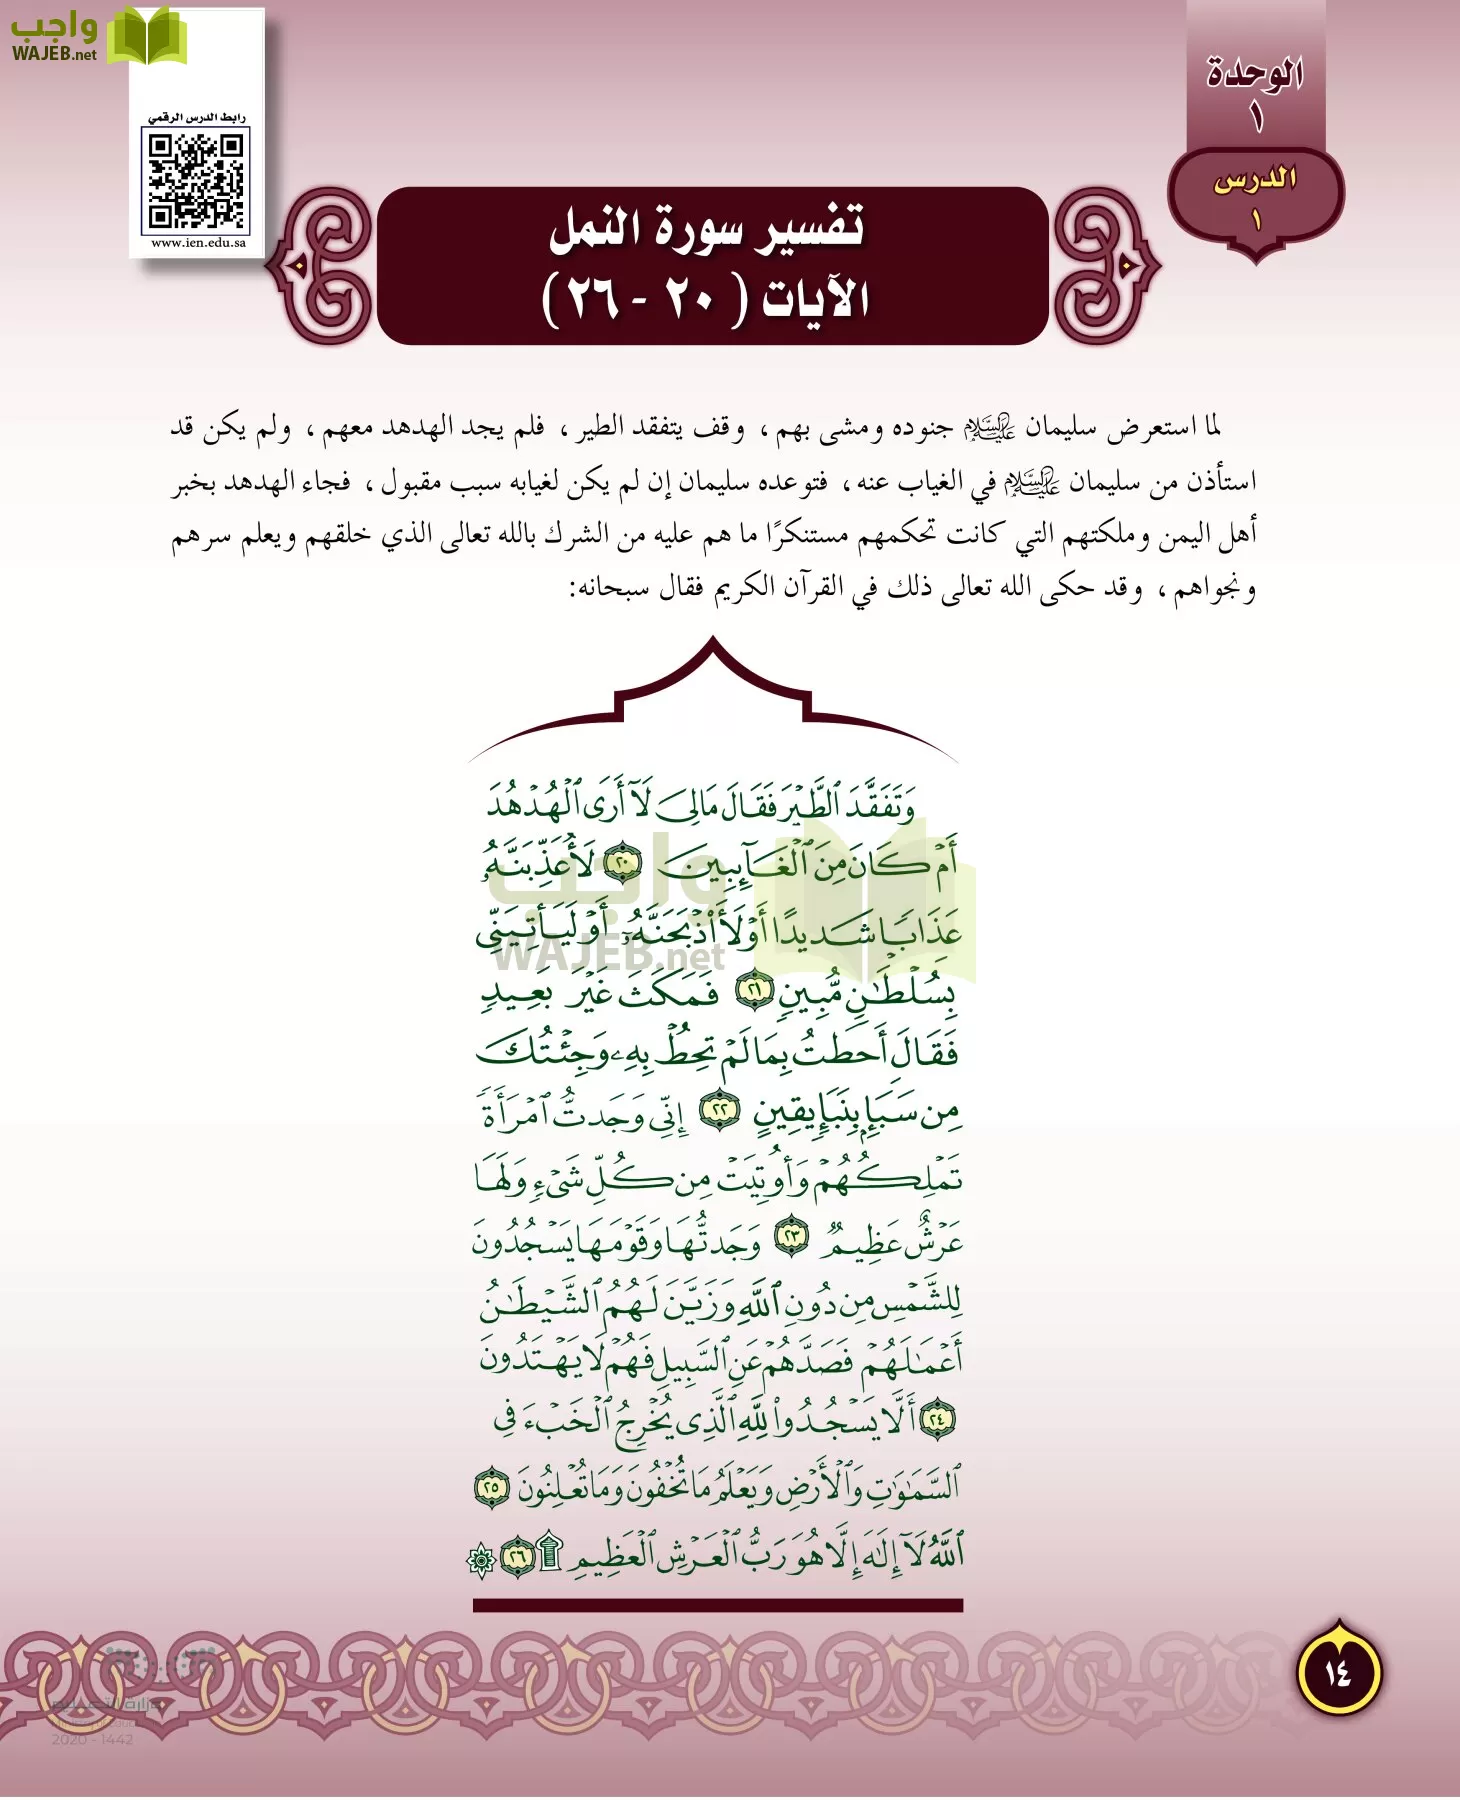 واجب
WAJEB.net
رابط الدرس الرقمي
www.ien.edu.sa
الوحدة
١
الدرس
١
تفسير سورة النمل
الآيات ( ٢٠ - ٢٦ )
لما استعرض سليمان عليه السلام جنوده ومشى بهم، وقف يتفقد الطير، فلم يجد الهدهد معهم، ولم يكن قد
استأذن من سليمان عليه السلام في الغياب عنه، فتوعده سليمان إن لم يكن لغيابه سبب مقبول، فجاء الهدهد بخبر
أهل اليمن وملكتهم التي كانت تحكمهم مستنكرًا ما هم عليه من الشرك بالله تعالى الذي خلقهم ويعلم سرهم
ونجواهم، وقد حكى الله تعالى ذلك في القرآن الكريم فقال سبحانه:
وَتَفَقَّدَ ٱلطَّيْرَ فَقَالَ مَالِيَ لَآ أَرَى ٱلْهُدْهُدَ
أَمْ كَانَ مِنَ ٱلْغَآئِبِينَ ٢٠ لَأُعَذِّبَنَّهُۥ
عَذَابًا شَدِيدًا أَوْ لَأَاْذْبَحَنَّهُۥٓ أَوْ لَيَأْتِيَنِّي
بِسُلْطَٰنٍ مُّبِينٍ ٢١ فَمَكَثَ غَيْرَ بَعِيدٍ
فَقَالَ أَحَطتُ بِمَا لَمْ تُحِطْ بِهِۦ وَجِئْتُكَ
مِن سَبَإٍۭ بِنَبَإٍ يَقِينٍ ٢٢ إِنِّي وَجَدتُّ ٱمْرَأَةً
تَمْلِكُهُمْ وَأُوتِيَتْ مِن كُلِّ شَيْءٍ وَلَهَا
عَرْشٌ عَظِيمٌ ٢٣ وَجَدتُّهَا وَقَوْمَهَا يَسْجُدُونَ
لِلشَّمْسِ مِن دُونِ ٱللَّهِ وَزَيَّنَ لَهُمُ ٱلشَّيْطَٰنُ
أَعْمَٰلَهُمْ فَصَدَّهُمْ عَنِ ٱلسَّبِيلِ فَهُمْ لَا يَهْتَدُونَ
٢٤ أَلَّا يَسْجُدُواْ لِلَّهِ ٱلَّذِي يُخْرِجُ ٱلْخَبْءَ فِي
ٱلسَّمَٰوَٰتِ وَٱلْأَرْضِ وَيَعْلَمُ مَا تُخْفُونَ وَمَا تُعْلِنُونَ ٢٥
ٱللَّهُ لَآ إِلَٰهَ إِلَّا هُوَ رَبُّ ٱلْعَرْشِ ٱلْعَظِيمِ ۩ ٢٦
واجب
WAJEB.net
١٤
وزارة التعليم
2020 - 1442